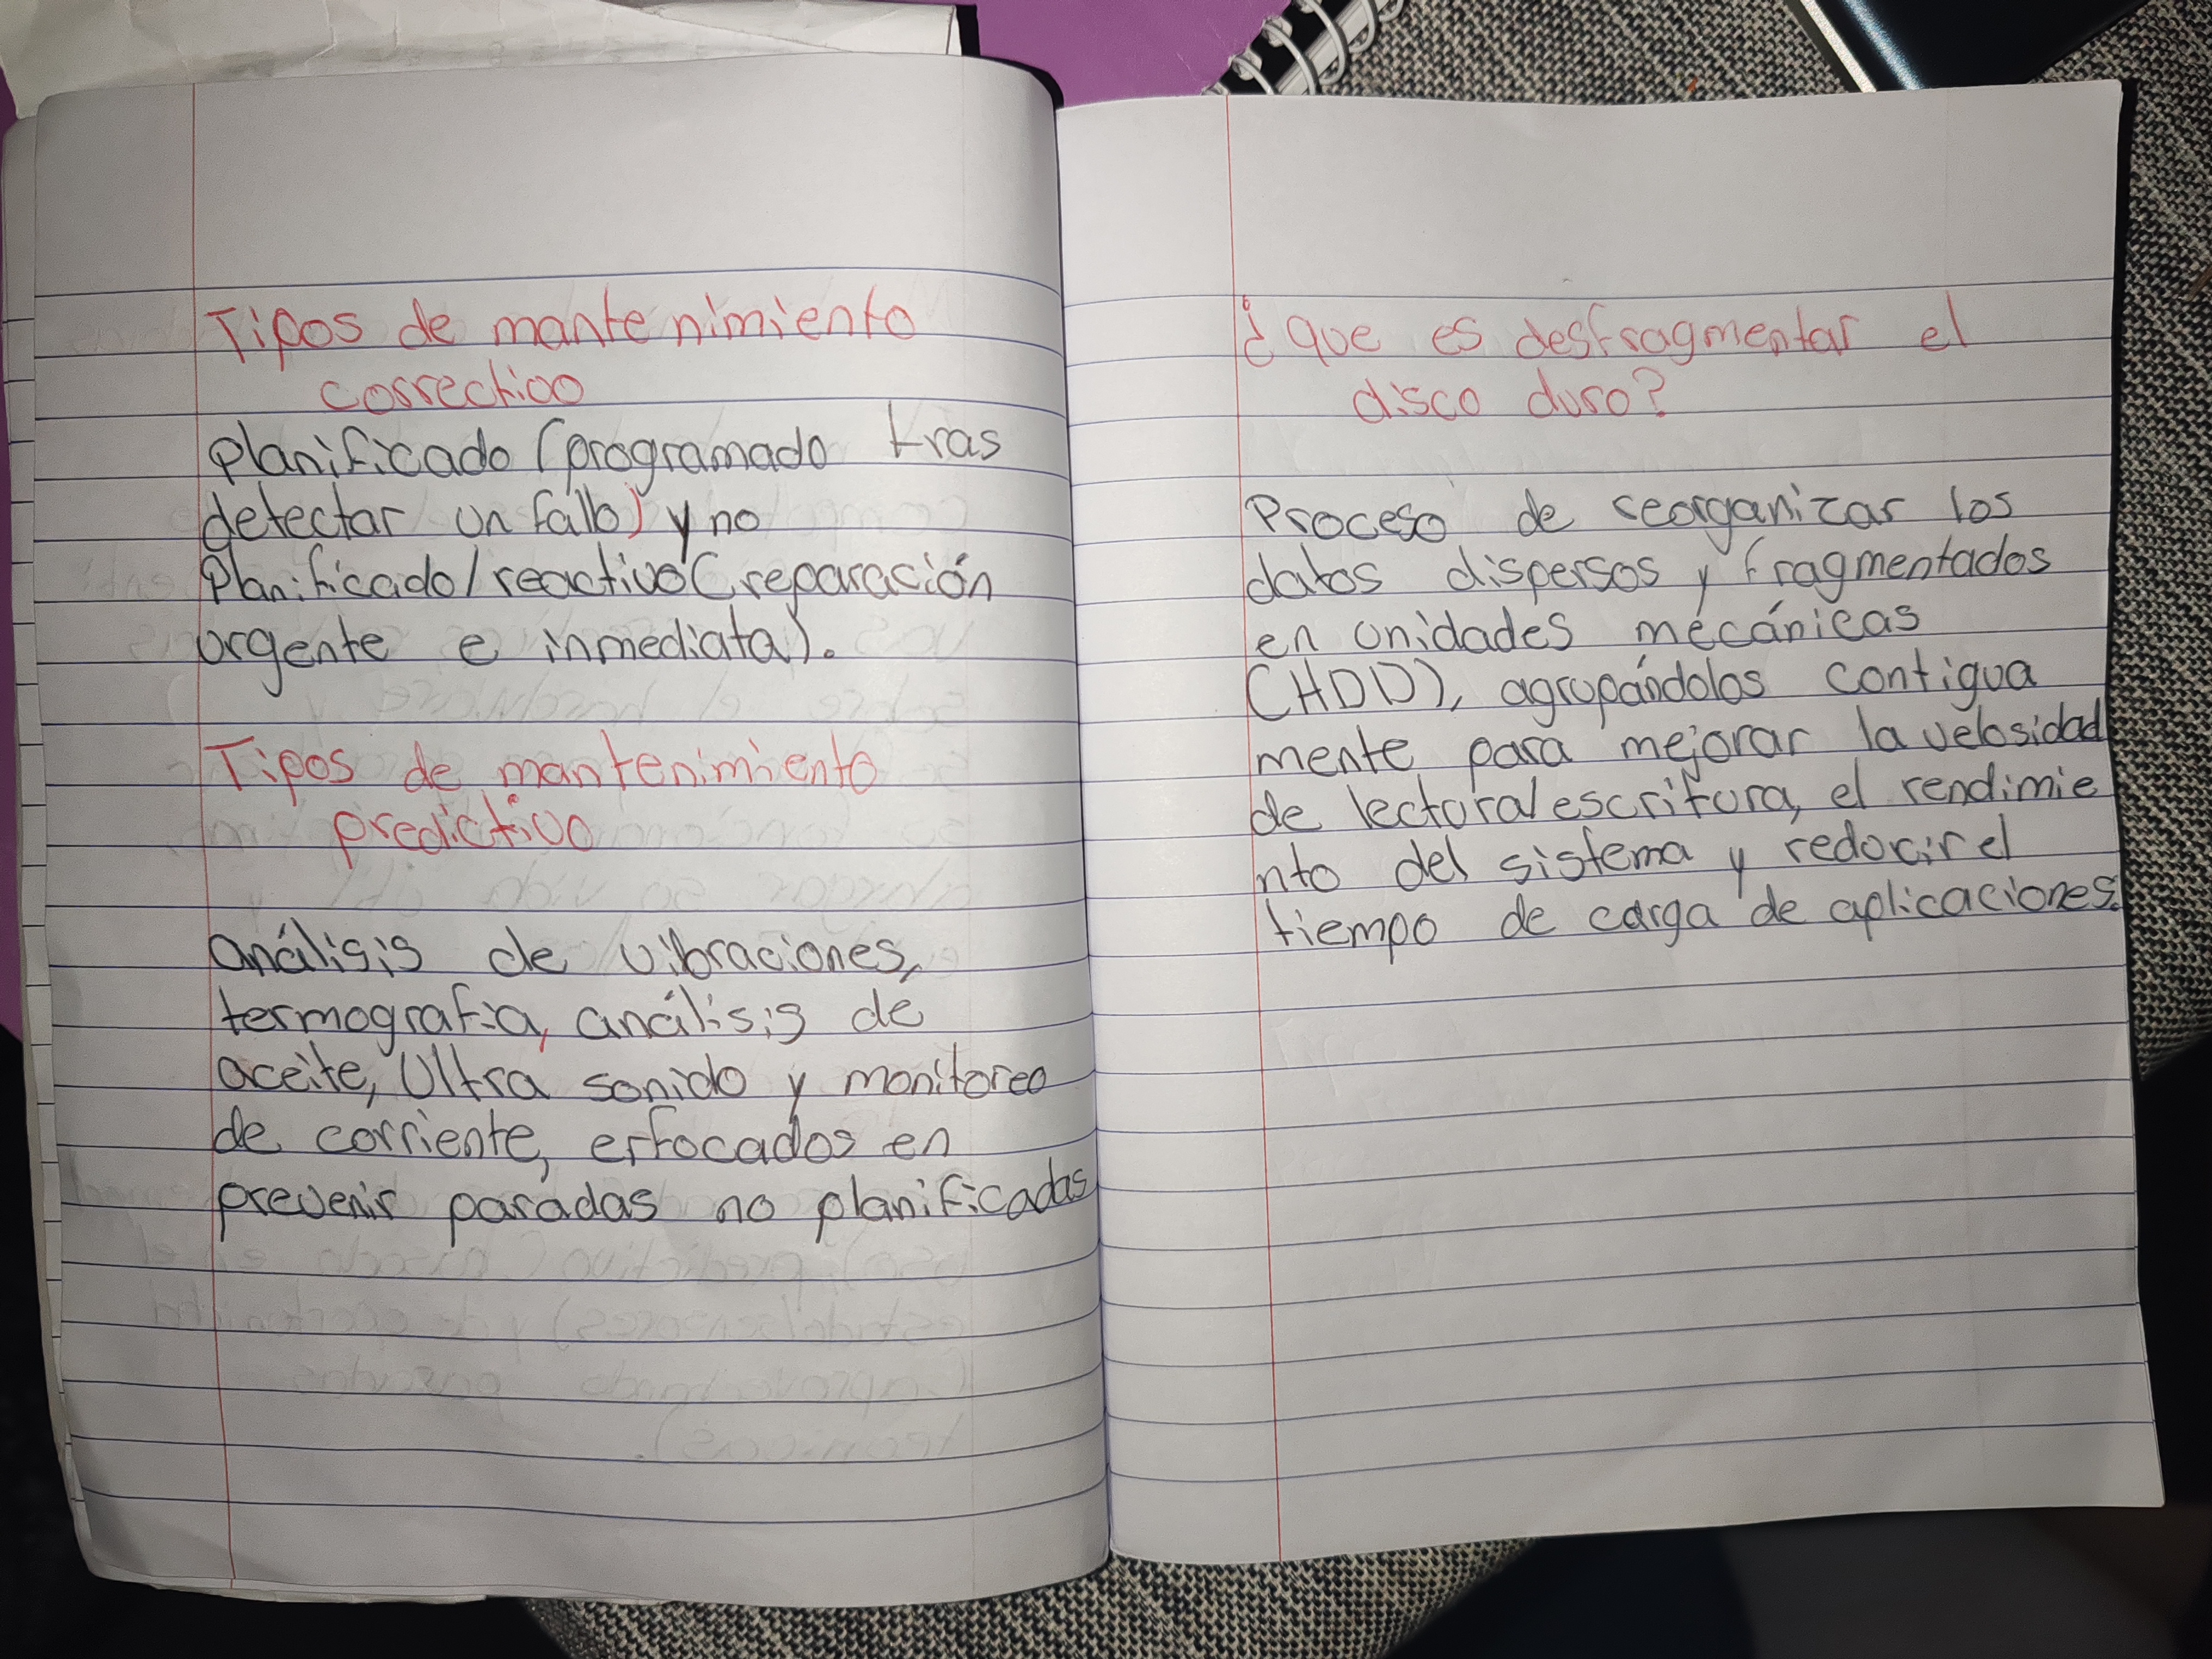 Tipos de mantenimiento
correctivo
planificado (programado tras
detectar un fallo) y no
Planificado/reactivo (reparación
urgente e inmediata).
Tipos de mantenimiento
predictivo
análisis de vibraciones,
termografia, análisis de
aceite, Ultra sonido y monitoreo
de corriente, enfocados en
prevenir paradas no planificadas
¿que es desfragmentar el
disco duro?
Proceso de reorganizar los
datos dispersos y fragmentados
en unidades mecánicas
(HDD), agrupándolos contigua
mente para mejorar la velosidad
de lectura/escritura, el rendimie
nto del sistema y reducir el
tiempo de carga de aplicaciones.